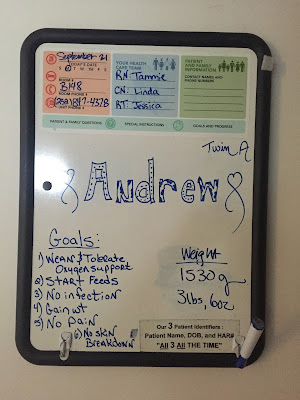 September 21
TODAY'S DATE
S M T W TH F S
ROOM #
B148
ROOM PHONE #
YOUR HEALTH
CARE TEAM
RN: Tammie
CN: Linda
RT: Jessica
PATIENT
AND FAMILY
INFORMATION
CONTACT NAMES AND
PHONE NUMBERS
PATIENT & FAMILY QUESTIONS
SPECIAL INSTRUCTIONS
GOALS AND PROGRESS
Twin A
Andrew
Goals:
1) Wean & Tolerate
Oxygen support
2) START Feeds
3) No infection
4) Gain wt
5) No Pain
6) No skin
Breakdown
Weight
1530g
3lbs, 6oz
Our 3 Patient Identifiers:
Patient Name, DOB, and HAR#
"All 3 All THE TIME"